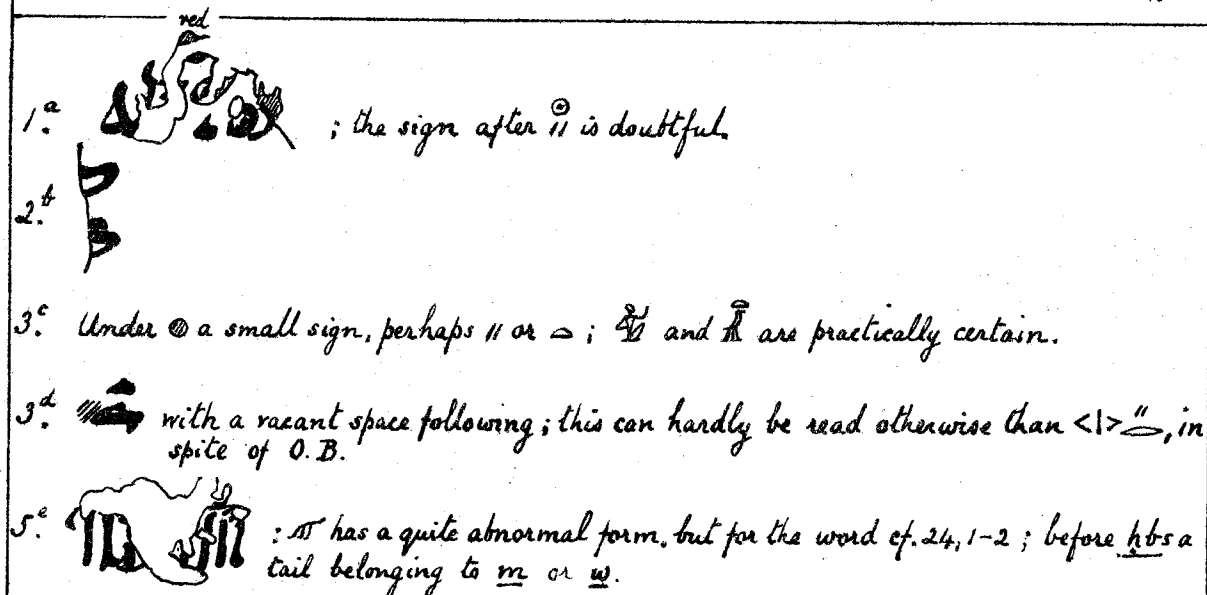 red
1.a ; the sign after 𓇳 \\ is doubtful.
2.b
3.c Under ◍ a small sign, perhaps \\ or 𓏏 ; and are practically certain.
3.d with a vacant space following ; this can hardly be read otherwise than <|> \\ 𓂋, in
spite of O.B.
5.e : has a quite abnormal form, but for the word cf. 24, 1-2 ; before ḥbs a
tail belonging to m or w.